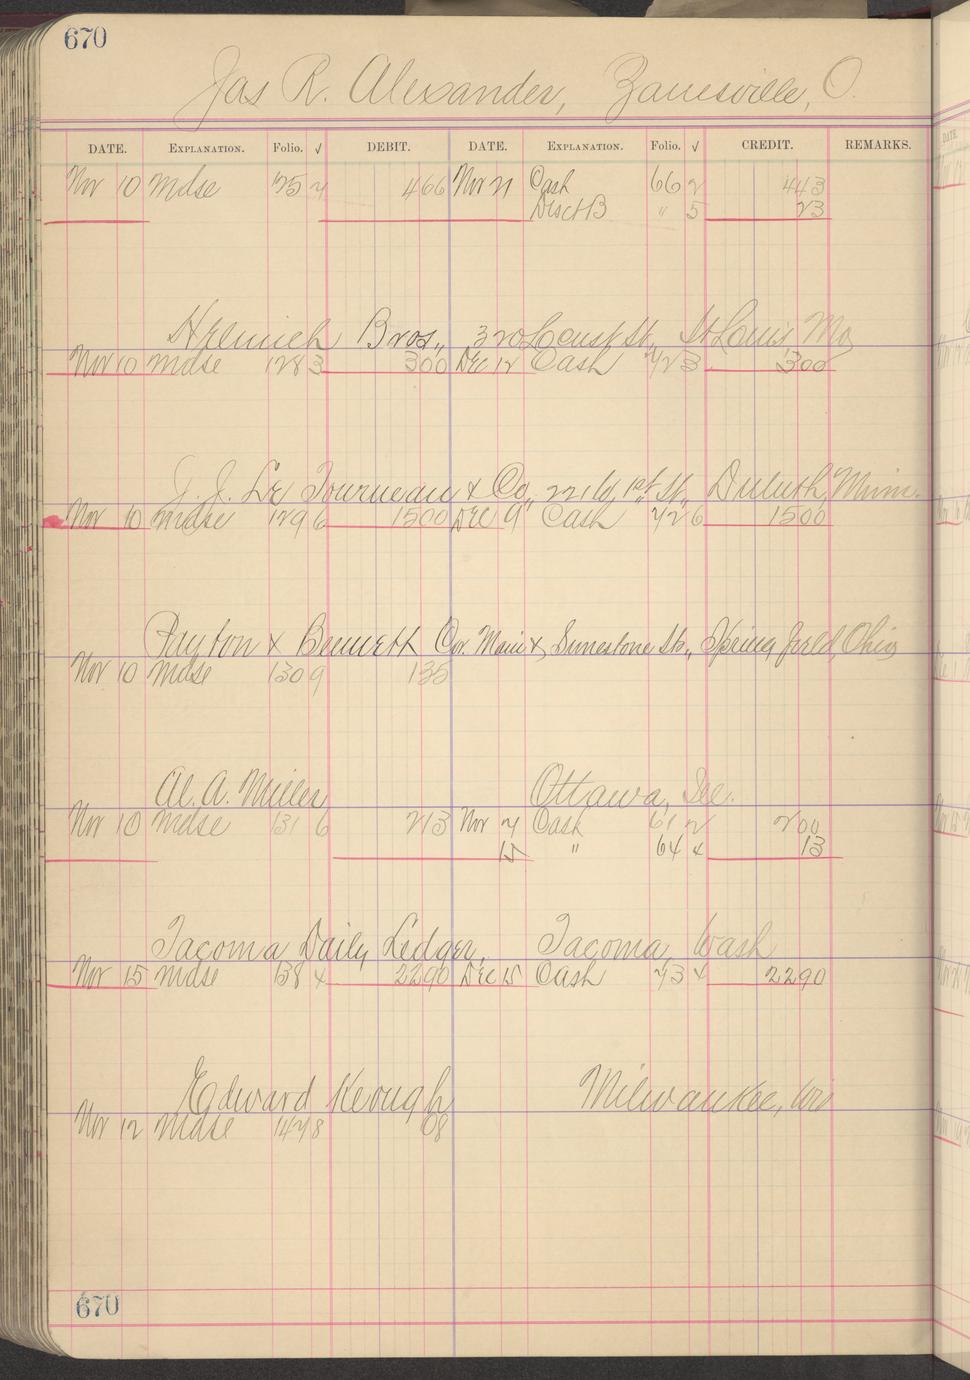 670
Jas R. Alexander, Zanesville, O.
DATE. EXPLANATION. Folio. √ DEBIT. DATE. EXPLANATION. Folio. √ CREDIT. REMARKS.
Nov 10 Mdse 125 7 466 Nov 21 Cash 66 2 443
Disct B " 5 23
Bros., 320 Locust St., St Louis, Mo
Nov 10 Mdse 128 3 300 Dec 12 Cash 72 3 300
J. J. Le Tourneau & Co., 221 W. 1st St., Duluth, Minn.
Nov 10 Mdse 129 6 1500 Dec 9 Cash 72 6 1500
Payton & Bennett Cor. Main & Limestone Sts., Springfield, Ohio
Nov 10 Mdse 130 9 135
Al. A. Miller Ottawa, Ill.
Nov 10 Mdse 131 6 213 Nov 7 Cash 61 2 200
15 " 64 4 13
Tacoma Daily Ledger, Tacoma, Wash
Nov 15 Mdse 138 4 2290 Dec 15 Cash 73 4 2290
Edward Keough Milwaukee, Wis
Nov 12 Mdse 147 8 08
670